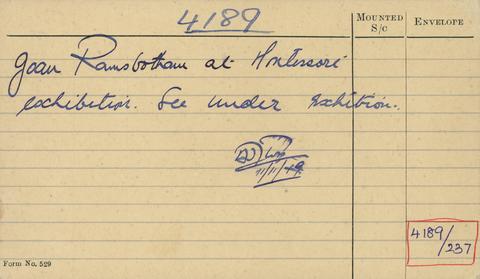 4189
MOUNTED S/C
ENVELOPE
Joan Ramsbotham at Montessori
exhibition. See under exhibition.
11/11/49
4189/237
Form No. 529